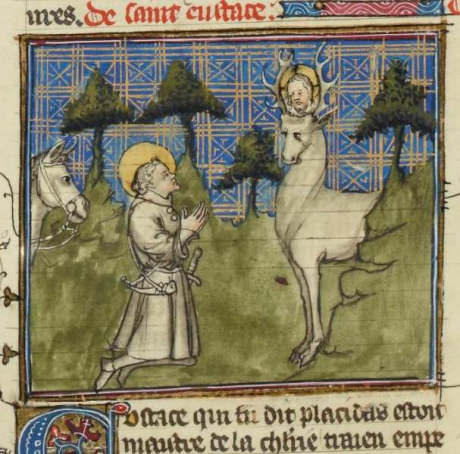 ures. De saint eustace:
Eustace qui fu dit placidas estoit
maistre de la chlrie traien empe